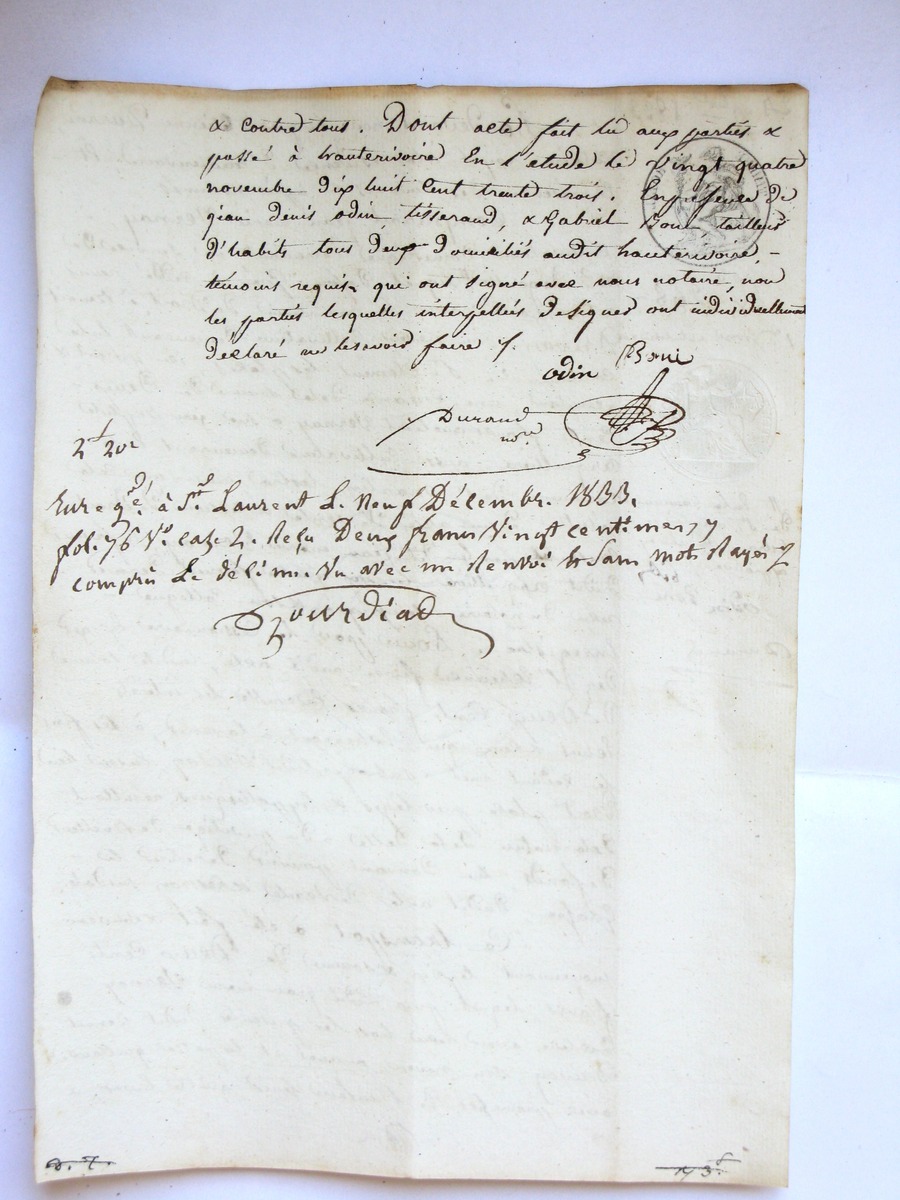 & contre tous. Dont acte fait lu aux parties &
passé à hauterivoire En l'étude le Vingt quatre
novembre dix huit Cent trente trois. En présence de
jean denis odin, tisserand, & Gabriel Boni, tailleur
D'habits tous deux Domiciliés audit hauterivoire, -
témoins requis, qui ont signé avec nous notaire, non
les parties lesquelles interpellées De Signer ont individuellement
Déclaré ne le savoir faire /.
odin Boni
Durand
nore
2f 20c
Enregré à St Laurent Le Neuf Décembre 1833.
fol. 76 Vo. case 2. Reçu Deux francs Vingt centimes, y
compris Le décime. Vu avec un Renvoi & Sans mots Rayés